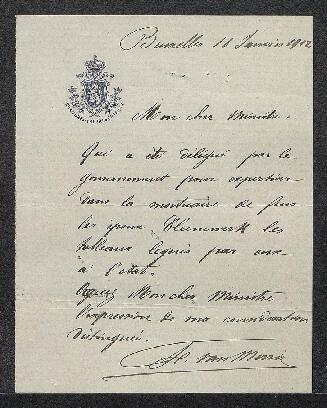 Bruxelles 11 Janvier 1902
Mon cher Ministre.
Qui a été délégué par le
gouvernement pour expertiser
dans la mortuaire de feu
les époux les
tableaux légués par eux
à l'état.
Agréez Mon cher Ministre
l'expression de ma considération
distinguée.